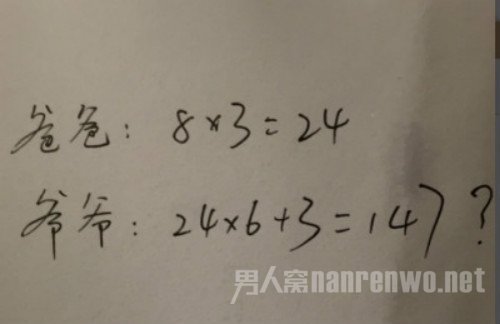 爸爸：8×3=24
爷爷：24×6+3=147？
男人窝nanrenwo.net